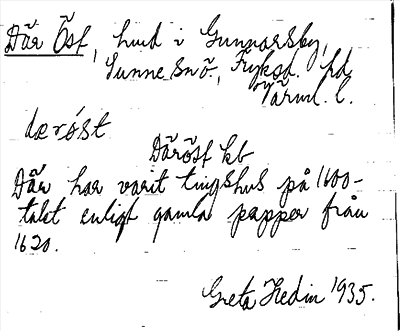 Där Öst, hmd i Gunnarsby,
Sunne sn ö., Fryksd. hd,
Värml. l.
dæröst
Däröst kb
Där har varit tingshus på 1600-
talet enligt gamla papper från
1620.
Greta Hedin 1935.